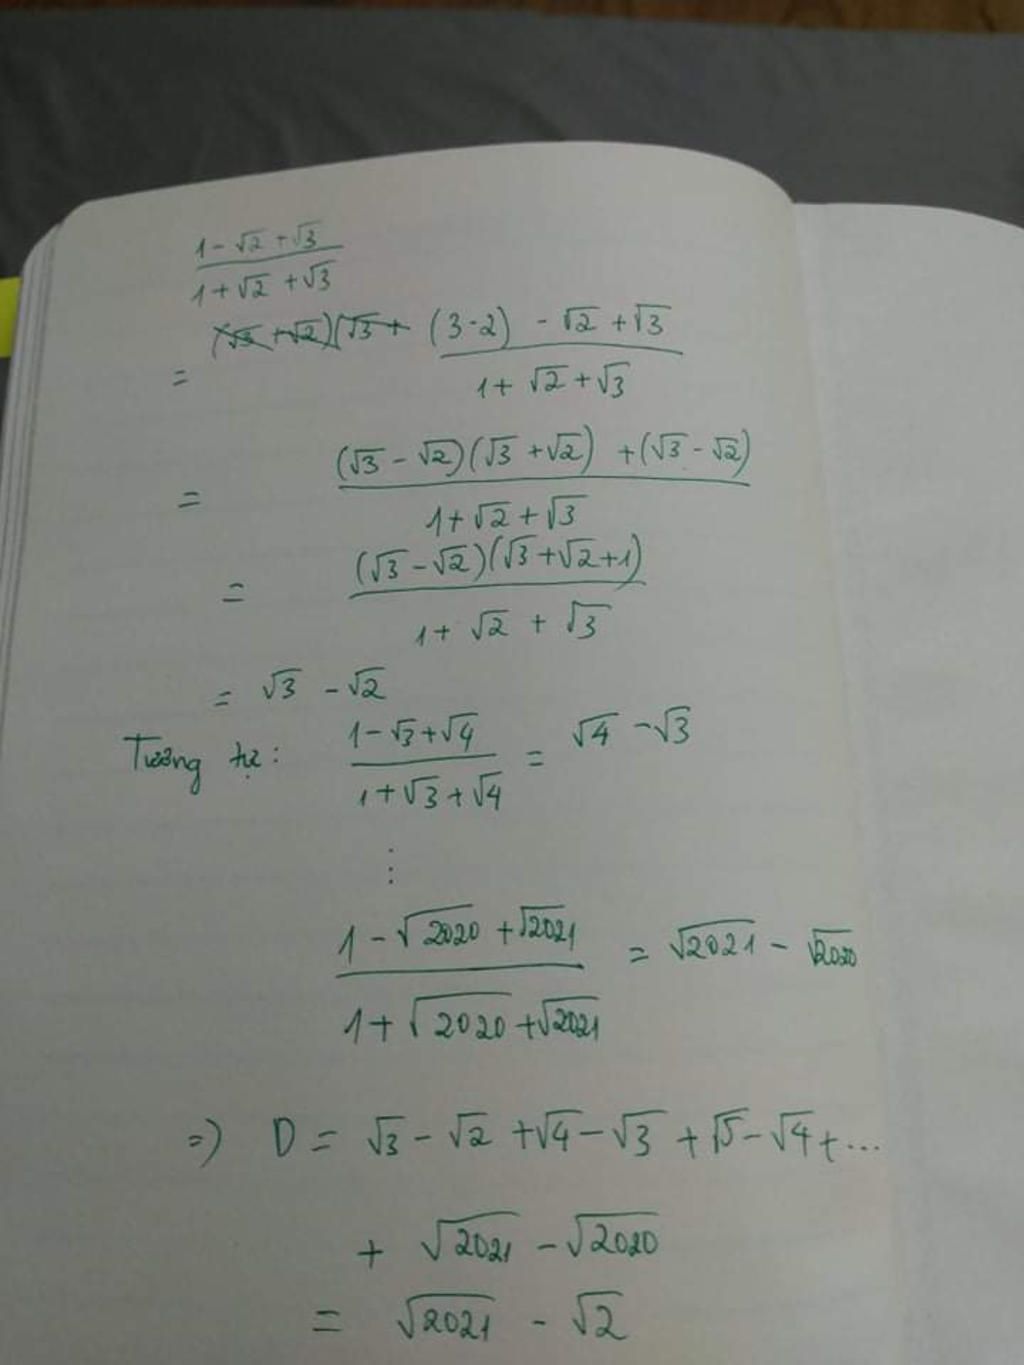 1 - √2 + √3
1 + √2 + √3
= (√3 + √2)(√3 + (3-2) - √2 + √3
1 + √2 + √3
= (√3 - √2)(√3 + √2) + (√3 - √2)
1 + √2 + √3
= (√3 - √2)(√3 + √2 + 1)
1 + √2 + √3
= √3 - √2
Tương tự: 1 - √3 + √4 = √4 - √3
1 + √3 + √4
⋮
1 - √2020 + √2021 = √2021 - √2020
1 + √2020 + √2021
=) D = √3 - √2 + √4 - √3 + √5 - √4 + ...
+ √2021 - √2020
= √2021 - √2